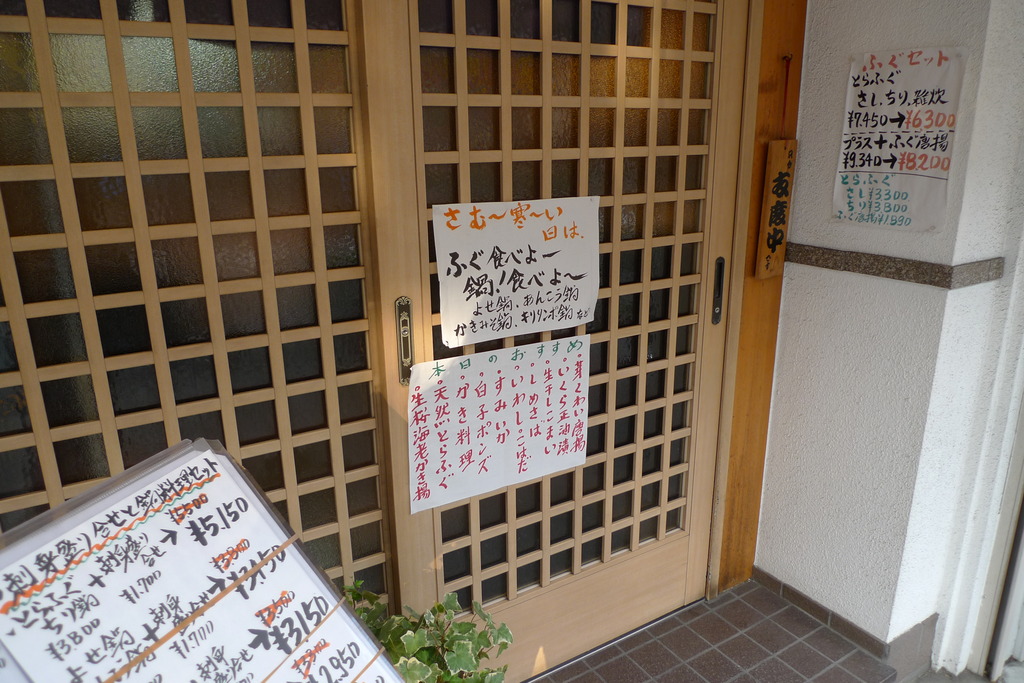 さむ〜寒〜い
日は、
ふぐ食べよー
鍋!食べよ〜
よせ鍋、あんこう鍋
かきみそ鍋、キリタンポ鍋など
本日のおすすめ
・芽くわい唐揚
・いくら正油漬
・生干しこまい
・しめさば
・いわし・こはだ
・すみいか
・白子ポンズ
・かき料理
・天然とらふぐ
・生桜海老かき揚
ふぐセット
とらふぐ
さし、ちり、雑炊
¥7.450→¥6300
プラス+ふぐ唐揚
¥9.340→¥8200
とらふぐ
さし¥3300
ちり¥3800
ふぐ唐揚¥1890
中
です。
刺身盛り合せと鍋料理セット
とらふぐ
ちり鍋
¥3800
+
刺身盛り
合せ
¥1.700
→
5500
¥5150
よせ鍋
+
刺身
¥1.700
→
¥3150
刺身
盛合せ